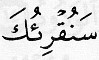 سَنُقْرِئُكَ